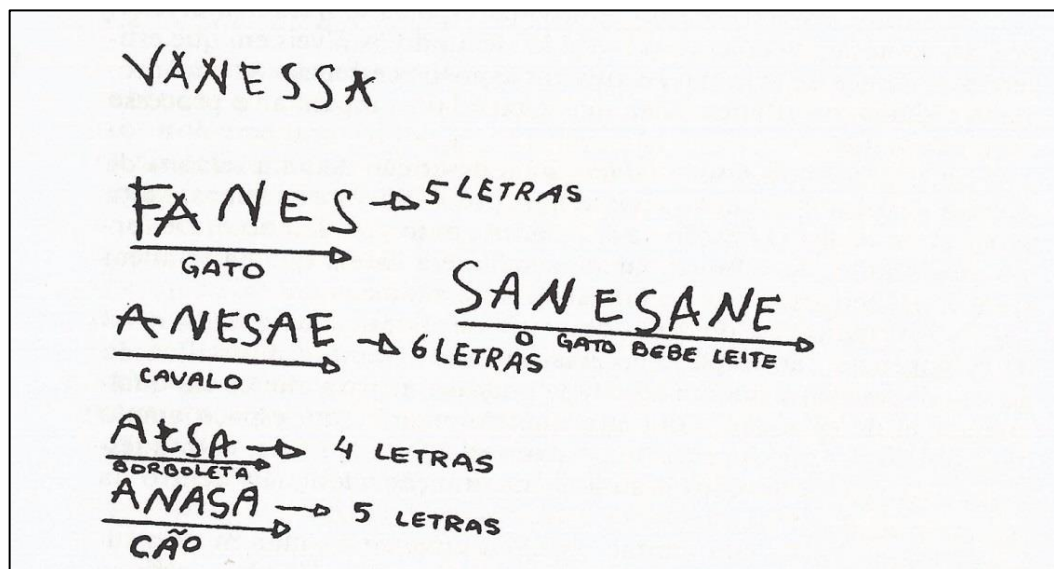 VANESSA
FANES → 5 LETRAS
GATO
SANESANE
O GATO BEBE LEITE
ANESAE → 6 LETRAS
CAVALO
AESA → 4 LETRAS
BORBOLETA
ANASA → 5 LETRAS
CÃO